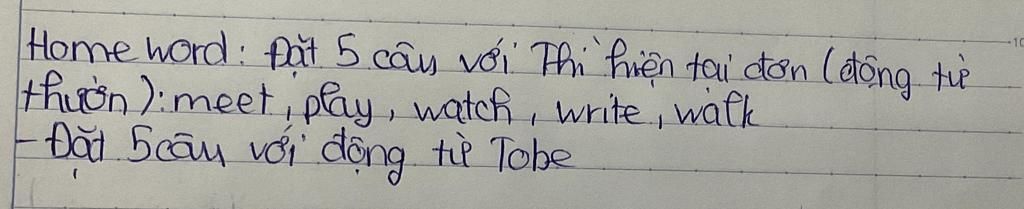 Home word: Đặt 5 câu với Thì hiện tại đơn (động từ
thườn): meet, play, watch, write, walk
- Đặt 5 câu với động từ Tobe